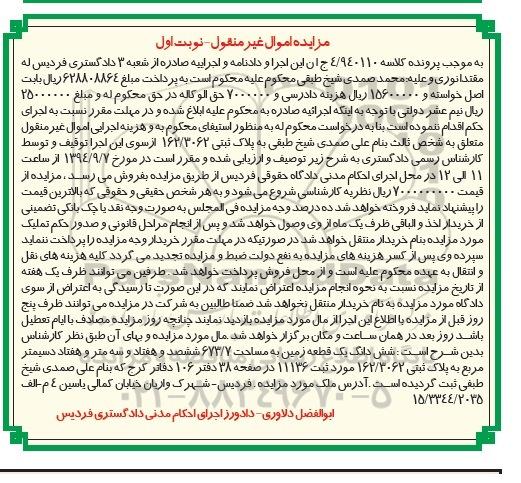 مزایده اموال غیر منقول-نوبت اول
به موجب پرونده کلاسه ۴/۹۴۰۱۱۰ ج ا ن این اجرا و دادنامه و اجراییه صادره از شعبه ۳ دادگستری فردیس له
مقتدا نوری و علیه: محمد صمدی شیخ طبقی محکوم علیه محکوم است به پرداخت مبلغ ۶۲۸۸۰۸۸۶۴ ریال بابت
اصل خواسته و ۱۵۶۰۰۰۰۰ ریال هزینه دادرسی و ۷۰۰۰۰۰۰ حق الوکاله در حق محکوم له و مبلغ ۲۵۰۰۰۰۰۰
ریال نیم عشر دولتی با توجه به اینکه اجرائیه صادره به محکوم علیه ابلاغ شده و در مهلت مقرر نسبت به اجرای
حکم اقدام ننموده است بنا به درخواست محکوم له به منظور استیفای محکوم به و هزینه اجرایی اموال غیر منقول
متعلق به شخص ثالث بنام علی صمدی شیخ طبقی به پلاک ثبتی ۱۶۲/۳۰۶۲ ازسوی این اجرا توقیف و توسط
کارشناس رسمی دادگستری به شرح زیر توصیف و ارزیابی شده و مقرر است در مورخ ۱۳۹۴/۹/۷ از ساعت
۱۱ الی ۱۲ در محل اجرای احکام مدنی دادگاه حقوقی فردیس از طریق مزایده بفروش می رسد، مزایده از
قیمت ۷۰۰۰۰۰۰۰۰۰ ریال نظریه کارشناسی شروع می شود و به هر شخص حقیقی و حقوقی که بالاترین قیمت
را پیشنهاد نماید فروخته خواهد شد. ده درصد وجه مزایده فی المجلس به صورت وجه نقد یا چک بانکی تضمینی
از خریدار اخذ و الباقی ظرف یک ماه از وی وصول خواهد شد و پس از انجام مراحل قانونی و صدور حکم تملیک
مورد مزایده بنام خریدار منتقل خواهد شد. در صورتیکه در مهلت مقرر خریدار وجه مزایده را پرداخت ننماید
سپرده وی پس از کسر هزینه های مزایده به نفع دولت ضبط و مزایده تجدید می گردد کلیه هزینه های نقل
و انتقال به عهده محکوم علیه است و از محل فروش پرداخت خواهد شد. طرفین می توانند ظرف یک هفته
از تاریخ مزایده نسبت به نحوه انجام مزایده اعتراض نمایند که در این صورت تا رسیدگی به اعتراض از سوی
دادگاه مورد مزایده به نام خریدار منتقل نخواهد شد ضمنا طالبین به شرکت در مزایده می توانند ظرف پنج
روز قبل از مزایده با اطلاع این اجرا از مال مورد مزایده بازدید نمایند چنانچه روز مزایده مصادف با ایام تعطیل
باشد روز بعد در همان ساعت و مکان برگزار خواهد شد. مال مورد مزایده و بهای آن طبق نظر کارشناس
بدین شرح است: شش دانگ یک قطعه زمین به مساحت ۶۷۳/۷ ششصد و هفتاد و سه متر و هفتاد دسیمتر
مربع به پلاک ثبتی ۱۶۲/۳۰۶۲ مورد ثبت ۱۱۱۳۶ در صفحه ۳۸ دفتر ۱۰۶ دفاتر کرج که بنام علی صمدی شیخ
طبقی ثبت گردیده است. آدرس ملک مورد مزایده: فردیس-شهرک واریان خیابان کمالی یاسین ۴ م-الف
۱۵/۳۳۴۴/۲۰۳۵
ابوالفضل دلاوری-دادورز اجرای احکام مدنی دادگستری فردیس